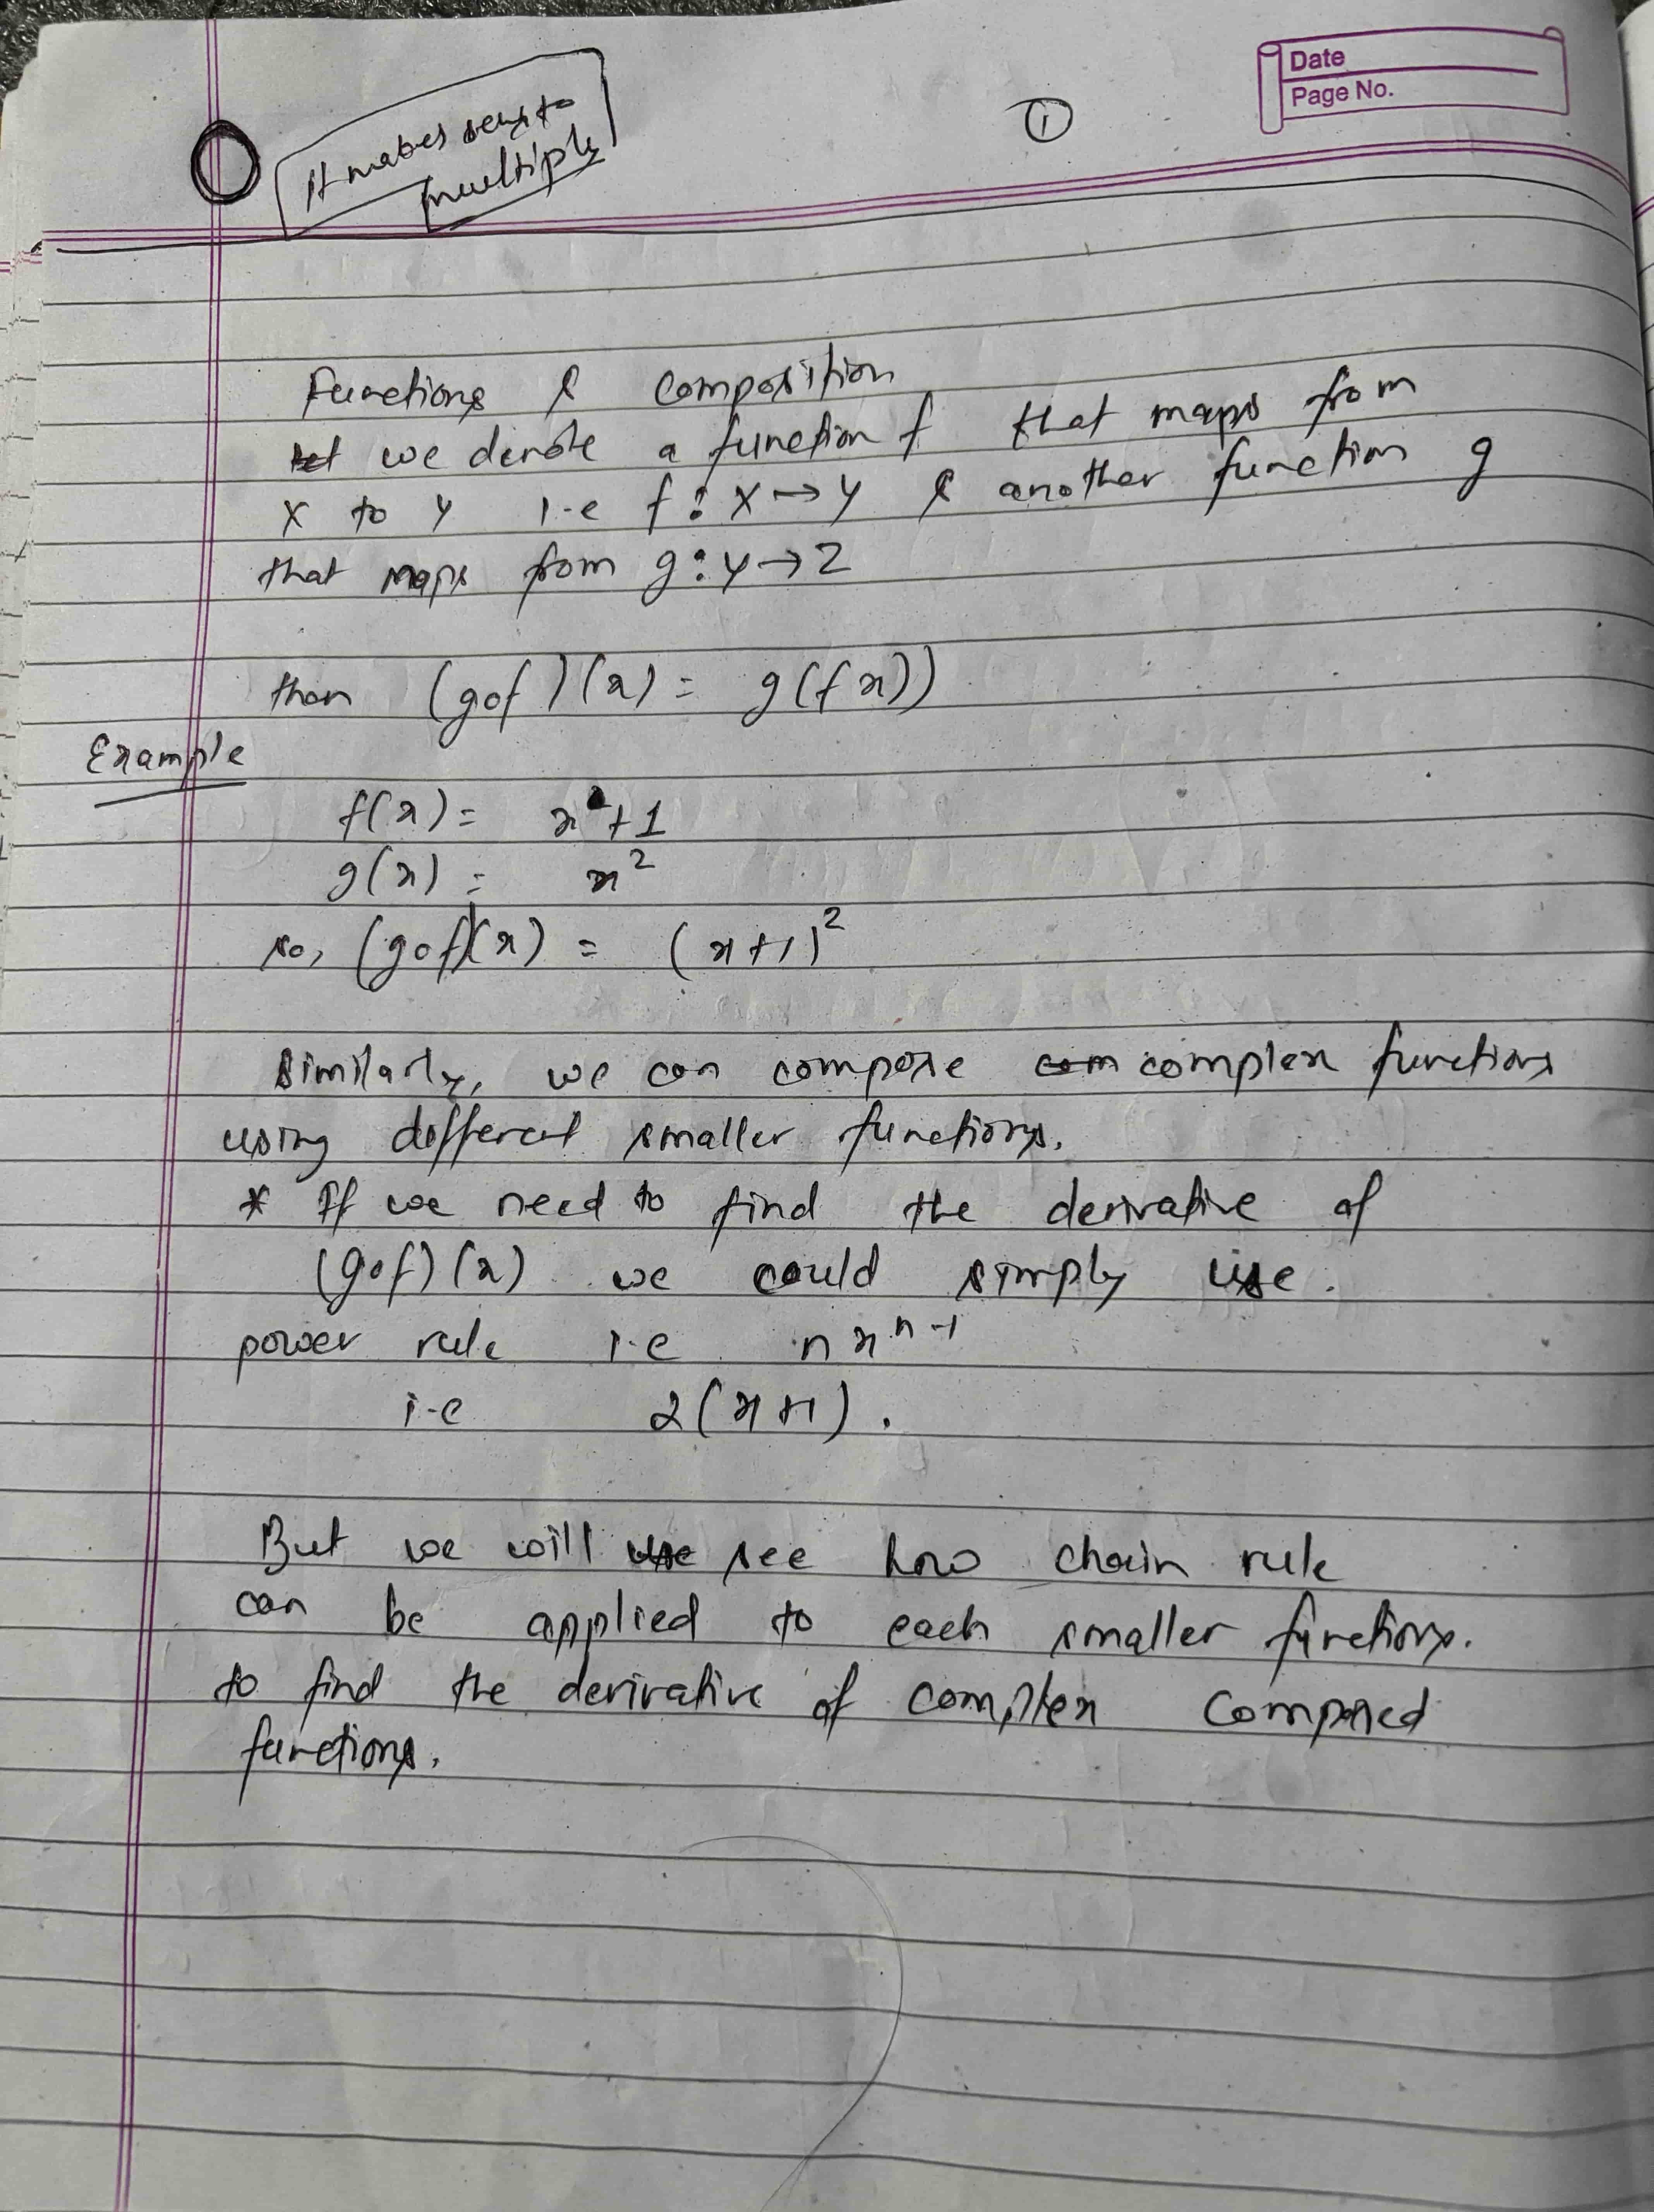 Date
Page No.
It makes sens to
multiply
①
Functions & composition
let we denote a function f that maps from
X to Y i.e f : X → Y & another function g
that maps from g : Y → Z
then (gof)(x) = g(f x))
Example
f(x) = x + 1
g(x) = x²
so, (gof)(x) = (x+1)²
Similarly, we can compose com complex functions
using different smaller functions.
* If we need to find the derivative of
(gof)(x) we could simply use.
power rule i.e n xⁿ⁻¹
i.e 2(x+1).
But we will use see how chain rule
can be applied to each smaller functions.
to find the derivative of complex composed
functions.